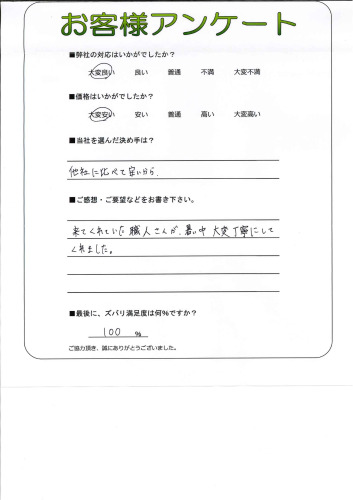 お客様アンケート
■弊社の対応はいかがでしたか?
大変良い 良い 普通 不満 大変不満
■価格はいかがでしたか?
大変安い 安い 普通 高い 大変高い
■当社を選んだ決め手は?
他社に比べて安いから.
■ご感想・ご要望などをお書き下さい。
来てくれていた職人さんが、暑い中 大変丁寧にして
くれました。
■最後に、ズバリ満足度は何%ですか?
100 %
ご協力頂き、誠にありがとうございました。